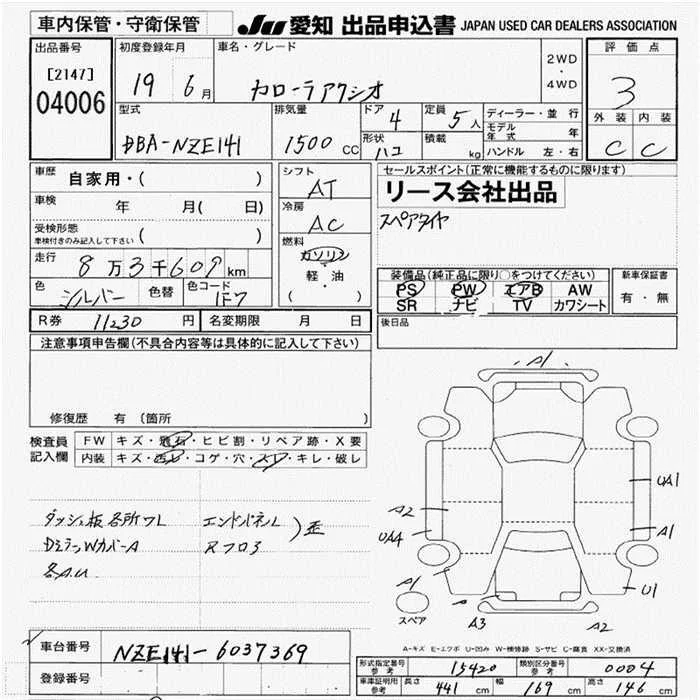 車内保管・守衛保管
JU 愛知 出品申込書 JAPAN USED CAR DEALERS ASSOCIATION
出品番号
[2147]
04006
初度登録年月
19 6月
車名・グレード
カローラアクシオ
2WD
・
4WD
評価点
3
外装 内装
C C
型式
DBA-NZE141
排気量
1500 CC
ドア 4
形状 ハコ
定員 5人
積載 kg
ディーラー・並行
モデル年式 年
ハンドル 左・右
車歴 自家用・( )
車検 年 月( 日)
受検形態
車検付きのみ記入して下さい ( )
走行 8万3千609km
色 シルバー 色替 色コード 1F7
シフト
AT
冷房
AC
燃料
ガソリン
軽・油
( )
セールスポイント(正常に機能するものに限ります)
リース会社出品
スペアタイヤ
装備品(純正品に限り○をつけてください)
PS PW エアB AW
SR ナビ TV カワシート
新車保証書
有・無
R券 11230 円 名変期限 月 日
後日品
注意事項申告欄(不具合内容等は具体的に記入して下さい)
修復歴 有(箇所 )
検査員
記入欄
FW キズ・飛石・ヒビ割・リペア跡・X要
内装 キズ・汚レ・コゲ・穴・スレ・キレ・破レ
ダッシュ板各所ワレ エンドパネル
DミラーWカバーA
各A.U
歪
A1
A2
UA4
UA1
A1
A1
U1
スペア
A3
A2
A-キズ E-エクボ U-凹み W-補修跡 S-サビ C-腐食 XX-交換済
車台番号 NZE141-6037369
登録番号
形式指定番号
参考
15420
類別区分番号
参考
0004
車庫証明用
参考
長さ 441cm 幅 169cm 高さ 146cm